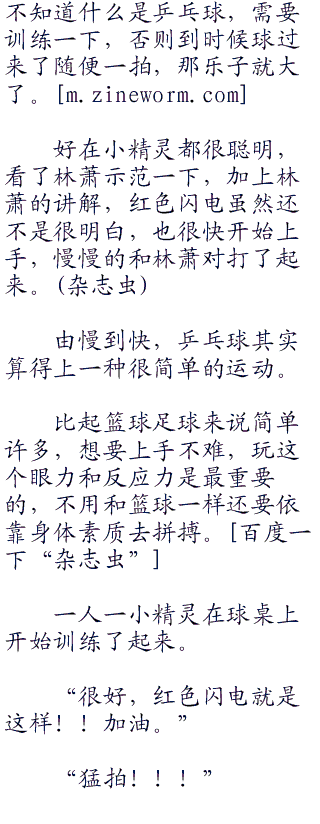 不知道什么是乒乓球，需要
训练一下，否则到时候球过
来了随便一拍，那乐子就大
了。[m.zineworm.com]
好在小精灵都很聪明，
看了林萧示范一下，加上林
萧的讲解，红色闪电虽然还
不是很明白，也很快开始上
手，慢慢的和林萧对打了起
来。(杂志虫)
由慢到快，乒乓球其实
算得上一种很简单的运动。
比起篮球足球来说简单
许多，想要上手不难，玩这
个眼力和反应力是最重要
的，不用和篮球一样还要依
靠身体素质去拼搏。[百度一
下“杂志虫”]
一人一小精灵在球桌上
开始训练了起来。
“很好，红色闪电就是
这样！！加油。”
“猛拍！！！”